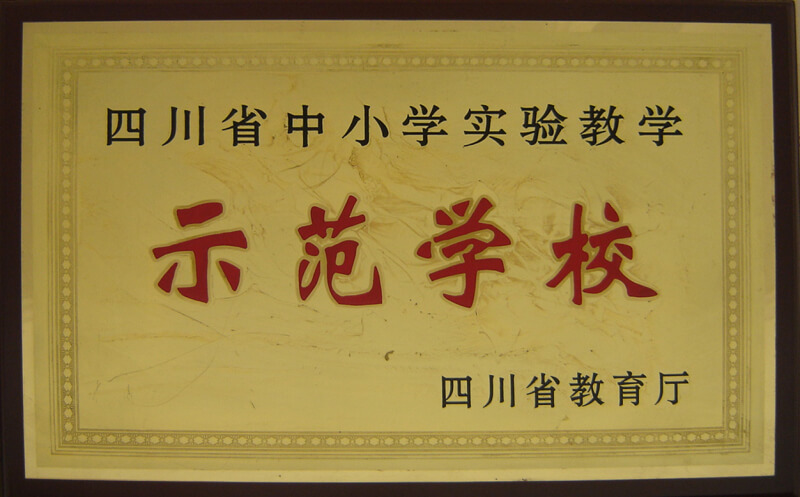 四川省中小学实验教学
示范学校
四川省教育厅